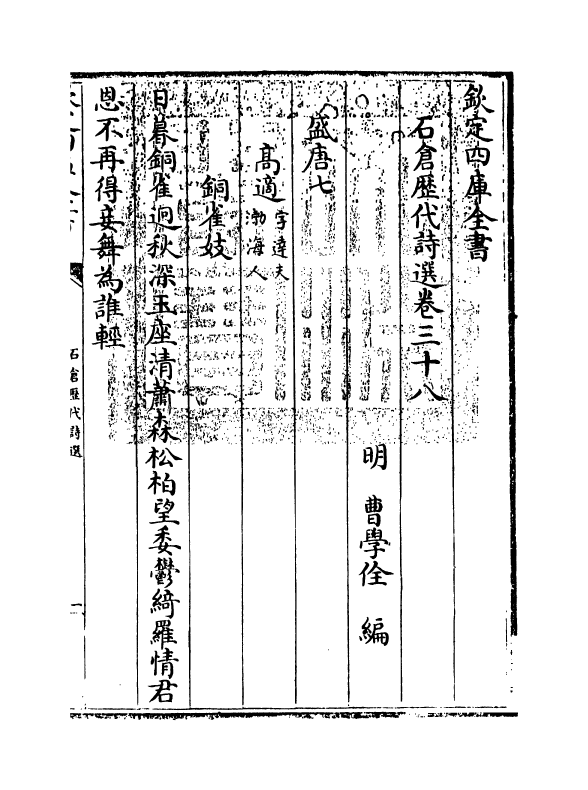 欽定四庫全書
石倉歷代詩選卷三十八
明 曹學佺 編
盛唐七
高適 字達夫 渤海人
銅雀妓
日暮銅雀迥秋深玉座清蕭森松柏望委鬱綺羅情君
恩不再得妾舞為誰輕
石倉歷代詩選
一